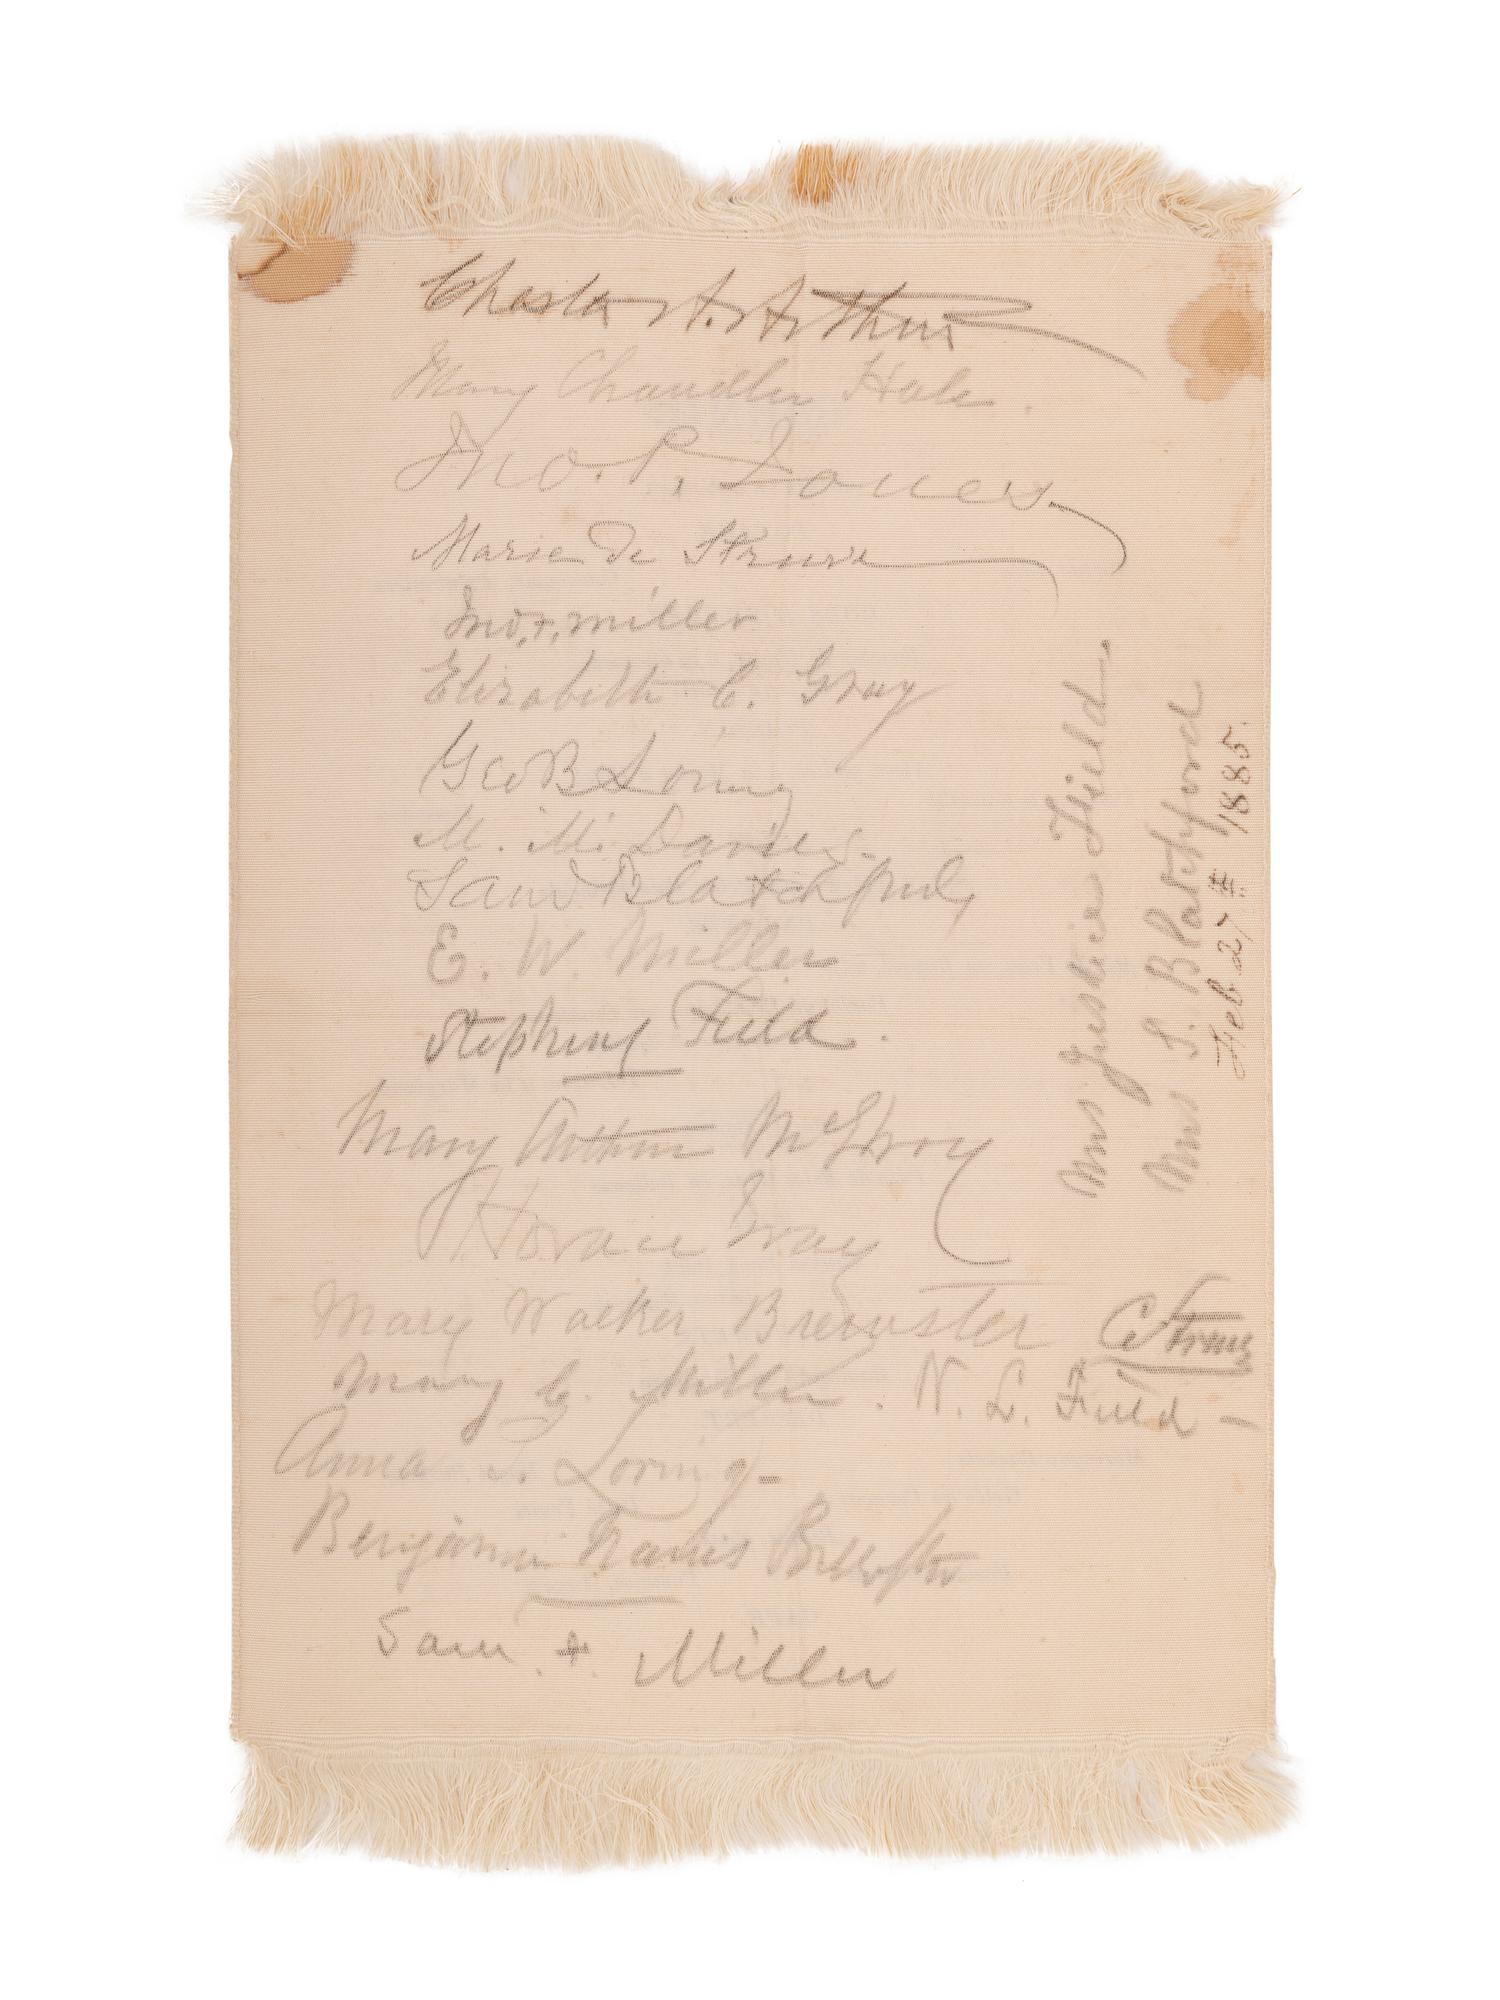 Chester A. Arthur
Mary Chandler Hale.
Jno. P. Jones
Marie de Struve
Jno. F. Miller
Elizabeth C. Gray
Geo B Loring
M. M. Davis
Sam Blatchford,
E. W. Miller
Stephen J Field.
Mary Arthur McElroy
Horace Gray
Mary Walker Brewster
C Struve
Mary C. Miller.
N. L. Field -
Anna S. Loring -
Benjamin Harris Brewster
Sam. F. Miller
Mrs Justice Field.
Mrs S. Blatchford
Feb. 27th 1885.